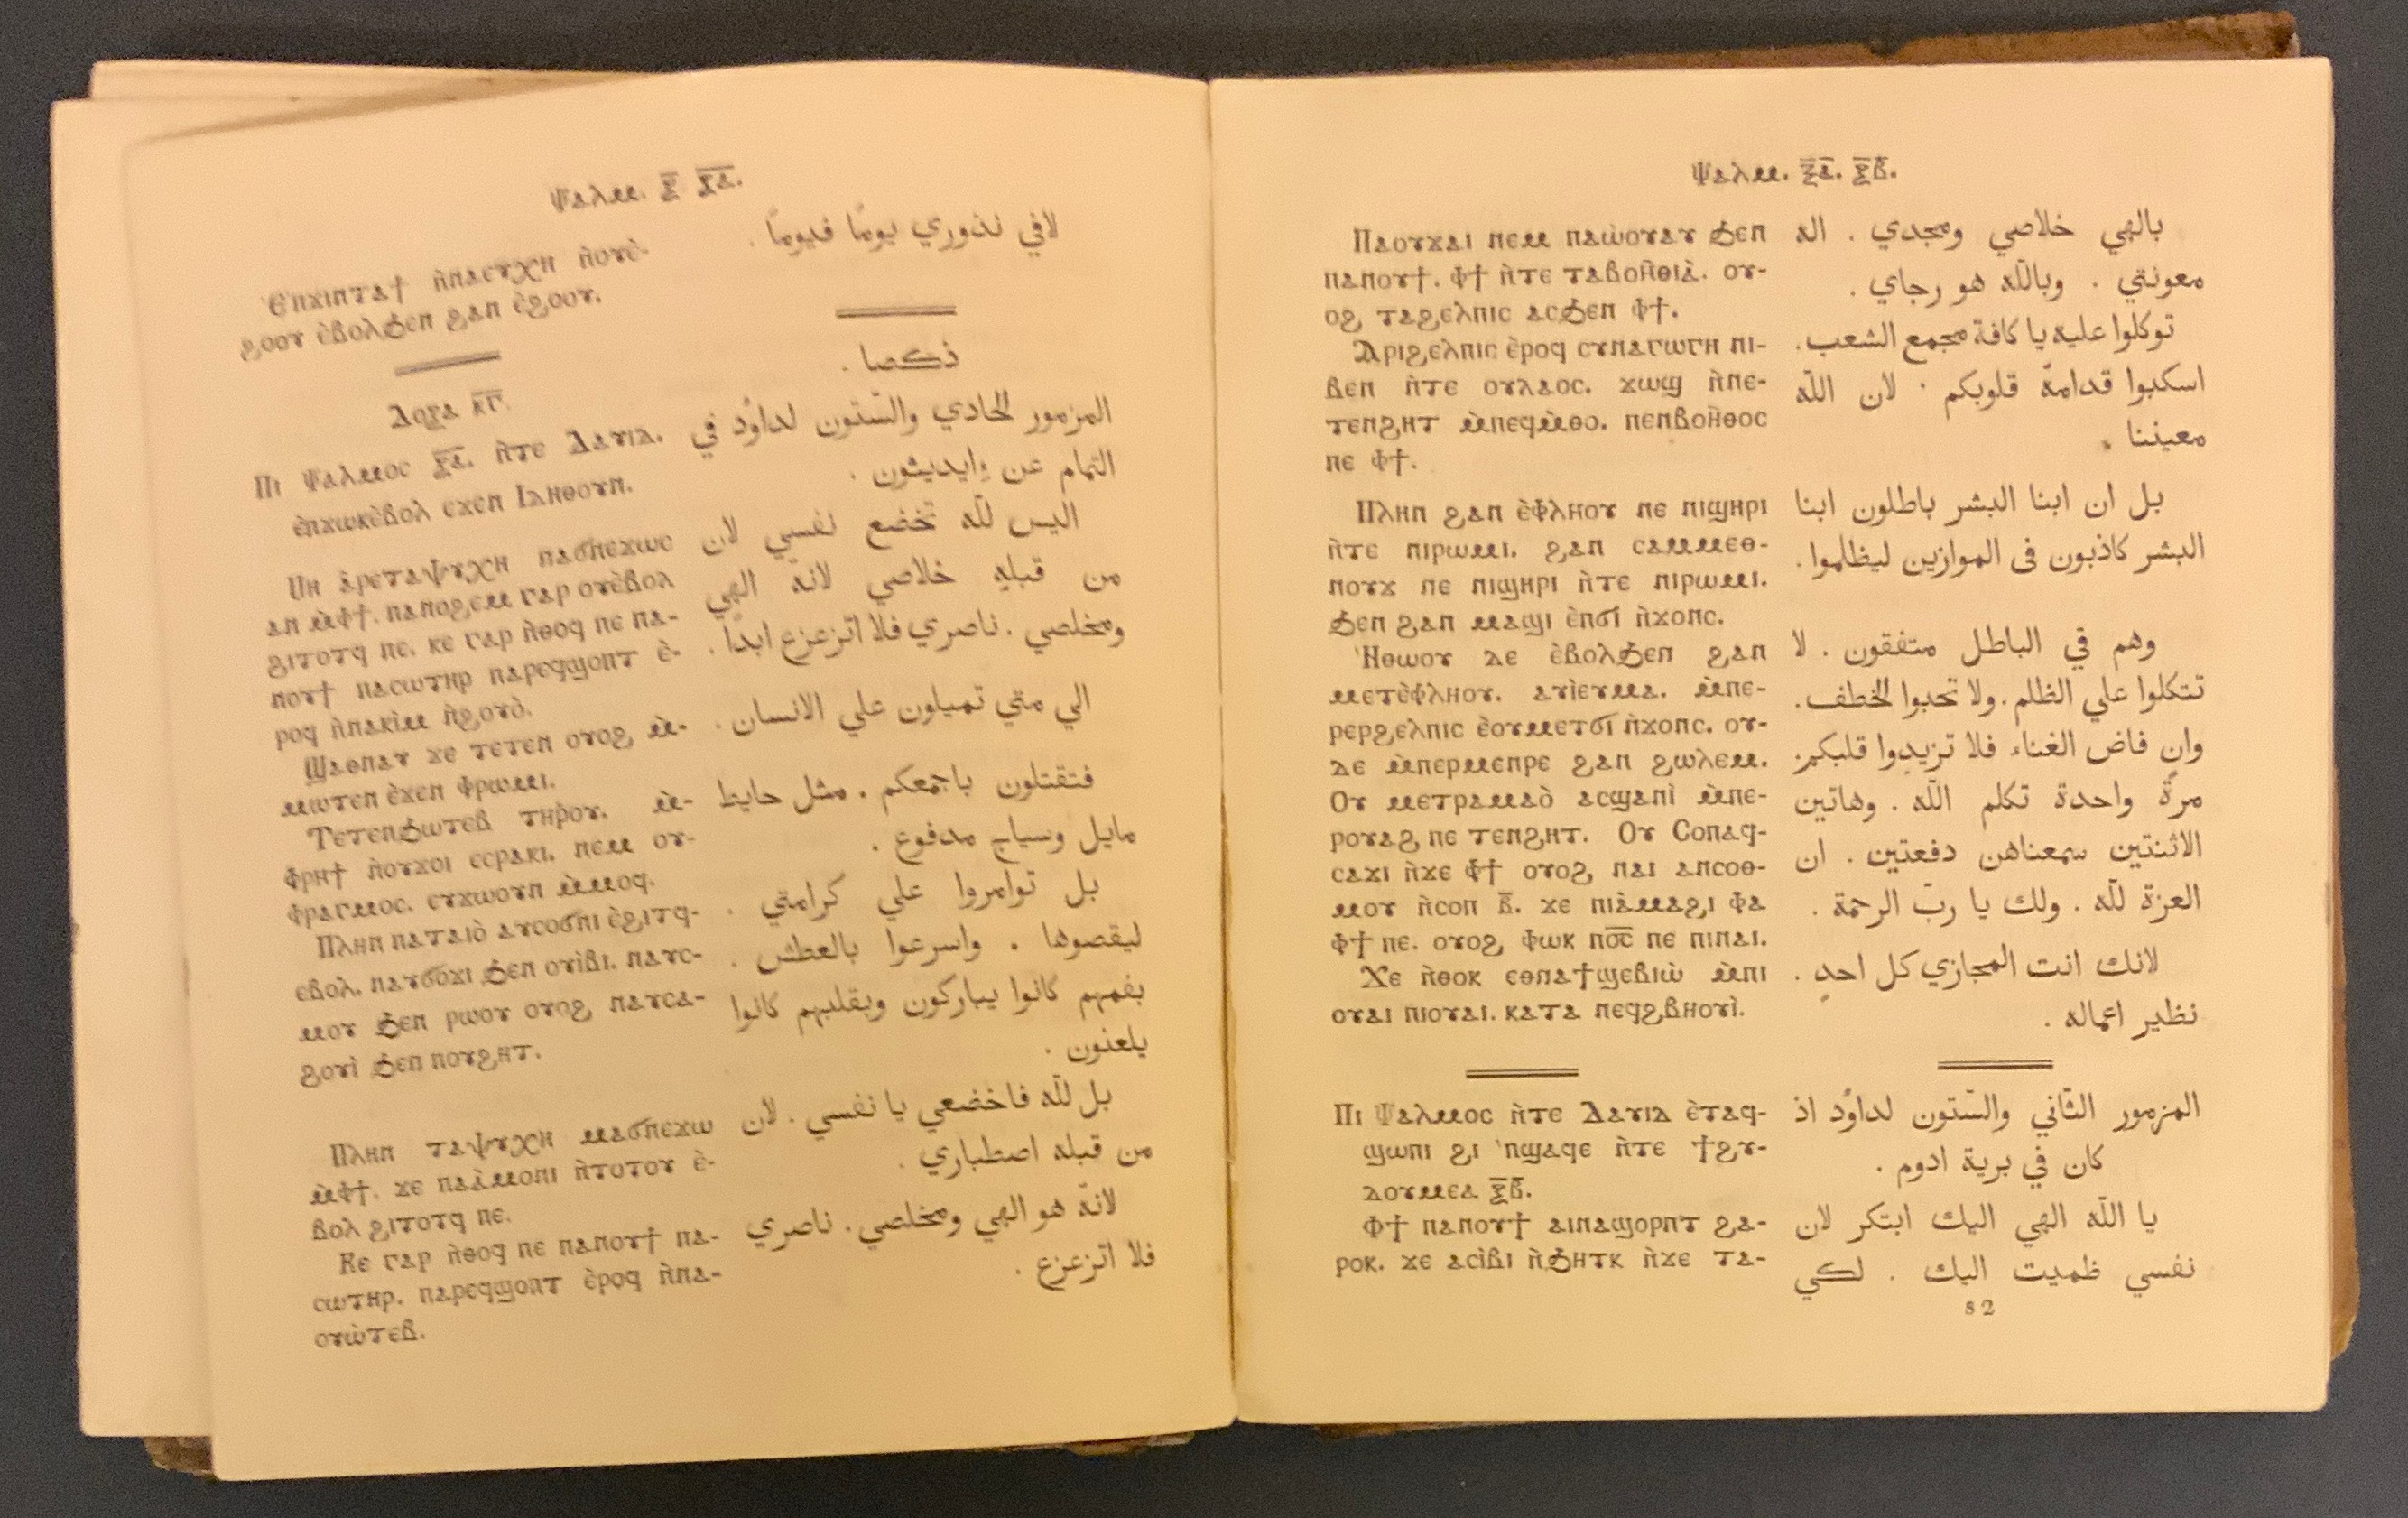 Ψⲁⲗⲙ. ⲝ̅ ⲝ̅ⲁ̅.
Ⲉⲡϫⲓⲛⲧⲁϯ ⲛ̀ⲛⲁⲉⲩⲭⲏ ⲛ̀ⲟⲩⲉ̀-
ϩⲟⲟⲩ ⲉ̀ⲃⲟⲗϧⲉⲛ ϩⲁⲛ ⲉ̀ϩⲟⲟⲩ.
Ⲇⲟⲝⲁ ⲕ̅ⲅ̅.
Ⲡⲓ Ψⲁⲗⲙⲟⲥ ⲝ̅ⲁ̅. ⲛ̀ⲧⲉ Ⲇⲁⲩⲓⲇ.
ⲉ̀ⲡϫⲱⲕⲉ̀ⲃⲟⲗ ⲉϫⲉⲛ Ⲓⲇⲏⲑⲟⲩⲛ.
Ⲙⲏ ⲁ̀ⲣⲉⲧⲁⲯⲩⲭⲏ ⲛⲁϭⲛⲉϫⲱⲥ
ⲁⲛ ⲙ̀ⲫϯ. ⲛⲁⲛⲟϩⲉⲙ ⲅⲁⲣ ⲟⲩⲉ̀ⲃⲟⲗ
ϩⲓⲧⲟⲧϥ ⲡⲉ. ⲕⲉ ⲅⲁⲣ ⲛ̀ⲑⲟϥ ⲡⲉ ⲡⲁ-
ⲛⲟⲩϯ ⲡⲁⲥⲱⲧⲏⲣ ⲡⲁⲣⲉϥϣⲟⲡⲧ ⲉ̀-
ⲣⲟϥ ⲛ̀ⲛⲁⲕⲓⲙ ⲛ̀ϩⲟⲩⲟ̀.
Ϣⲁⲑⲛⲁⲩ ϫⲉ ⲧⲉⲧⲉⲛ ⲟⲩⲟϩ ⲙ̀-
ⲙⲱⲧⲉⲛ ⲉ̀ϫⲉⲛ ⲫⲣⲱⲙⲓ.
Ⲧⲉⲧⲉⲛϧⲱⲧⲉⲃ ⲧⲏⲣⲟⲩ. ⲙ̀-
ⲫⲣⲏϯ ⲛ̀ⲟⲩϫⲟⲓ ⲉⲥⲣⲁⲕⲓ. ⲛⲉⲙ ⲟⲩ-
ⲫⲣⲁⲅⲙⲟⲥ. ⲉⲩϫⲱⲟⲩⲛ ⲙ̀ⲙⲟϥ.
Ⲡⲗⲏⲛ ⲡⲁⲧⲁⲓⲟ̀ ⲁⲩⲥⲟϭⲛⲓ ⲉ̀ϩⲓⲧϥ-
ⲉⲃⲟⲗ. ⲛⲁⲩϭⲟϫⲓ ϧⲉⲛ ⲟⲩⲓ̀ⲃⲓ. ⲛⲁⲩⲥ-
ⲙⲟⲩ ϧⲉⲛ ⲣⲱⲟⲩ ⲟⲩⲟϩ ⲛⲁⲩⲥⲁ-
ϩⲟⲩⲓ̀ ϧⲉⲛ ⲡⲟⲩϩⲏⲧ.
Ⲡⲗⲏⲛ ⲧⲁⲯⲩⲭⲏ ⲙⲁϭⲛⲉϫⲱ
ⲙ̀ⲫϯ. ϫⲉ ⲡⲁⲁ̀ⲙⲟⲛⲓ ⲛ̀ⲧⲟⲧⲟⲩ ⲉ̀-
ⲃⲟⲗ ϩⲓⲧⲟⲧϥ ⲡⲉ.
Ⲕⲉ ⲅⲁⲣ ⲛ̀ⲑⲟϥ ⲡⲉ ⲡⲁⲛⲟⲩϯ ⲡⲁ-
ⲥⲱⲧⲏⲣ. ⲡⲁⲣⲉϥϣⲟⲡⲧ ⲉ̀ⲣⲟϥ ⲛ̀ⲛⲁ-
ⲟⲩⲱ̀ⲧⲉⲃ.
لافي نذوري يومًا فيومًا .
ذكصا .
المزمور الحادي والستّون لداوُد في
التمام عن وايديثون .
اليس للّه تخضع نفسي لان
من قبله خلاصي لانه الهي
ومخلصي . ناصري فلا اتزعزع ابدًا .
الي متي تميلون علي الانسان .
فتقتلون باجمعكم . مثل حايط
مايل وسياج مدفوع .
بل توامروا علي كرامتي .
ليقصوها . واسرعوا بالعطش .
بفمهم كانوا يباركون وبقلبهم كانوا
يلعنون .
بل للّه فاخضعي يا نفسي . لان
من قبله اصطباري .
لانهّ هو الهي ومخلصي . ناصري
فلا اتزعزع .
Ψⲁⲗⲙ. ⲝ̅ⲁ̅. ⲝ̅ⲃ̅.
Ⲡⲁⲟⲩϫⲁⲓ ⲛⲉⲙ ⲡⲁⲱ̀ⲟⲩⲁⲩ ϧⲉⲛ
ⲡⲁⲛⲟⲩϯ. Ⲫϯ ⲛ̀ⲧⲉ ⲧⲁⲃⲟⲏ̀ⲑⲓⲁ̀. ⲟⲩ-
ⲟϩ ⲧⲁϩⲉⲗⲡⲓⲥ ⲁⲥϧⲉⲛ Ⲫϯ.
Ⲁⲣⲓϩⲉⲗⲡⲓⲥ ⲉ̀ⲣⲟϥ ⲥⲩⲛⲁⲅⲱⲅⲏ ⲛⲓ-
ⲃⲉⲛ ⲛ̀ⲧⲉ ⲟⲩⲗⲁⲟⲥ. ϫⲱϣ ⲛ̀ⲛⲉ-
ⲧⲉⲛϩⲏⲧ ⲙ̀ⲡⲉϥⲙ̀ⲑⲟ. ⲡⲉⲛⲃⲟⲏ̀ⲑⲟⲥ
ⲡⲉ Ⲫϯ.
Ⲡⲗⲏⲛ ϩⲁⲛ ⲉ̀ⲫⲗⲏⲟⲩ ⲛⲉ ⲛⲓϣⲏⲣⲓ
ⲛ̀ⲧⲉ ⲛⲓⲣⲱⲙⲓ. ϩⲁⲛ ⲥⲁⲙⲙⲉⲑ-
ⲛⲟⲩϫ ⲛⲉ ⲛⲓϣⲏⲣⲓ ⲛ̀ⲧⲉ ⲛⲓⲣⲱⲙⲓ.
ϧⲉⲛ ϩⲁⲛ ⲙⲁϣⲓ ⲉ̀ⲡϭⲓ ⲛ̀ϫⲟⲛⲥ.
Ⲛ̀ⲑⲱⲟⲩ ⲇⲉ ⲉ̀ⲃⲟⲗϧⲉⲛ ϩⲁⲛ
ⲙⲉⲧⲉ̀ⲫⲗⲏⲟⲩ. ⲁⲩⲓ̀ⲉⲩⲙⲁ. ⲙ̀ⲡⲉ-
ⲣⲉⲣϩⲉⲗⲡⲓⲥ ⲉ̀ⲟⲩⲙⲉⲧϭⲓ ⲛ̀ϫⲟⲛⲥ. ⲟⲩ-
ⲇⲉ ⲙ̀ⲡⲉⲣⲙⲉⲛⲣⲉ ϩⲁⲛ ϩⲱⲗⲉⲙ.
Ⲟⲩ ⲙⲉⲧⲣⲁⲙⲁⲟ̀ ⲁⲥϣⲁⲛⲓ̀ ⲙ̀ⲡⲉ-
ⲣⲟⲩⲁϩ ⲡⲉ ⲧⲉⲛϩⲏⲧ. Ⲟⲩ Ⲥⲟⲡⲁϥ-
ⲥⲁϫⲓ ⲛ̀ϫⲉ Ⲫϯ ⲟⲩⲟϩ ⲛⲁⲓ ⲁⲛⲥⲟⲑ-
ⲙⲟⲩ ⲛ̀ⲥⲟⲡ ⲃ̅. ϫⲉ ⲡⲓⲁ̀ⲙⲁϩⲓ ⲫⲁ
Ⲫϯ ⲡⲉ. ⲟⲩⲟϩ ⲫⲱⲕ ⲡⲟ̅ⲥ̅ ⲡⲉ ⲡⲓⲛⲁⲓ.
Ϫⲉ ⲛ̀ⲑⲟⲕ ⲉⲑⲛⲁϯϣⲉⲃⲓⲱ̀ ⲙ̀ⲡⲓ
ⲟⲩⲁⲓ ⲡⲓⲟⲩⲁⲓ. ⲕⲁⲧⲁ ⲛⲉϥϩⲃⲏⲟⲩⲓ̀.
Ⲡⲓ Ψⲁⲗⲙⲟⲥ ⲛ̀ⲧⲉ Ⲇⲁⲩⲓⲇ ⲉ̀ⲧⲁϥ-
ϣⲱⲡⲓ ϩⲓ ̀ⲡϣⲁϥⲉ ⲛ̀ⲧⲉ ϯϩⲩ-
ⲇⲟⲩⲙⲉⲁ ⲝ̅ⲃ̅.
Ⲫϯ ⲡⲁⲛⲟⲩϯ ⲁⲓⲛⲁϣⲟⲣⲡⲧ ϩⲁ-
ⲣⲟⲕ. ϫⲉ ⲁⲥⲓ̀ⲃⲓ ⲛ̀ϧⲏⲧⲕ ⲛ̀ϫⲉ ⲧⲁ-
بالهي خلاصي ومجدي . اله
معونتي . وباللّه هو رجاي .
توكلوا عليه يا كافة مجمع الشعب .
اسكبوا قدامهّ قلوبكم . لان اللّه
معيننا .
بل ان ابنا البشر باطلون ابنا
البشر كاذبون فى الموازين ليظلموا .
وهم في الباطل متفقون . لا
تتكلوا علي الظلم . ولا تحبوا الخطف .
وان فاض الغناء فلا تزيدوا قلبكم .
مرةً واحدة تكلم اللّه . وهاتين
الاثنتين سمعناهن دفعتين . ان
العزة للّه . ولك يا ربّ الرحمة .
لانك انت المجازي كل احدٍ .
نظير اعماله .
المزمور الثّاني والستّون لداوُد اذ
كان في برية ادوم .
يا اللّه الهي اليك ابتكر لان
نفسي ظميت اليك . لكي
s 2